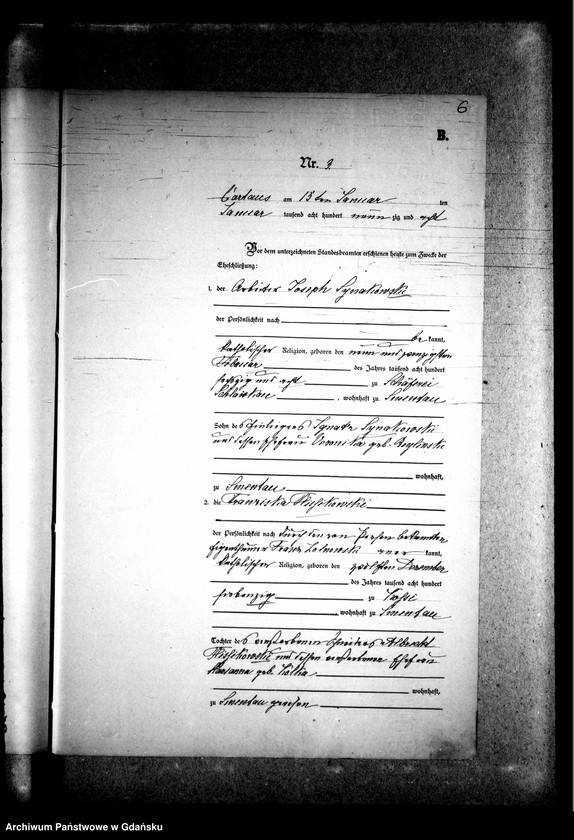 6
B.
Nr. 9.
Cartaus am 13ten Januar ten
Januar tausend acht hundert neun zig und acht
Vor dem unterzeichneten Standesbeamten erschienen heute zum Zwecke der
Eheschließung:
1. der Arbeiter Joseph Synakowski
der Persönlichkeit nach
be kannt,
katholischer Religion, geboren den neun und zwanzigsten
Februar des Jahres tausend acht hundert
sechzig und acht zu Schäferei
wohnhaft zu Smentau
Sohn des Ignatz Synakowski
und dessen Ehefrau Veronika geb.
wohnhaft,
zu Smentau
2. die Franziska
der Persönlichkeit nach durch den von Person bekannten
Eigenthümer Franz aner kannt,
katholischer Religion, geboren den zwölften Dezember
des Jahres tausend acht hundert
siebenzig zu
wohnhaft zu Smentau
Tochter des verstorbenen Albrecht
und dessen verstorbenen Ehefrau
Marianna geb.
wohnhaft,
zu Smentau gewesen
Archiwum Państwowe w Gdańsku